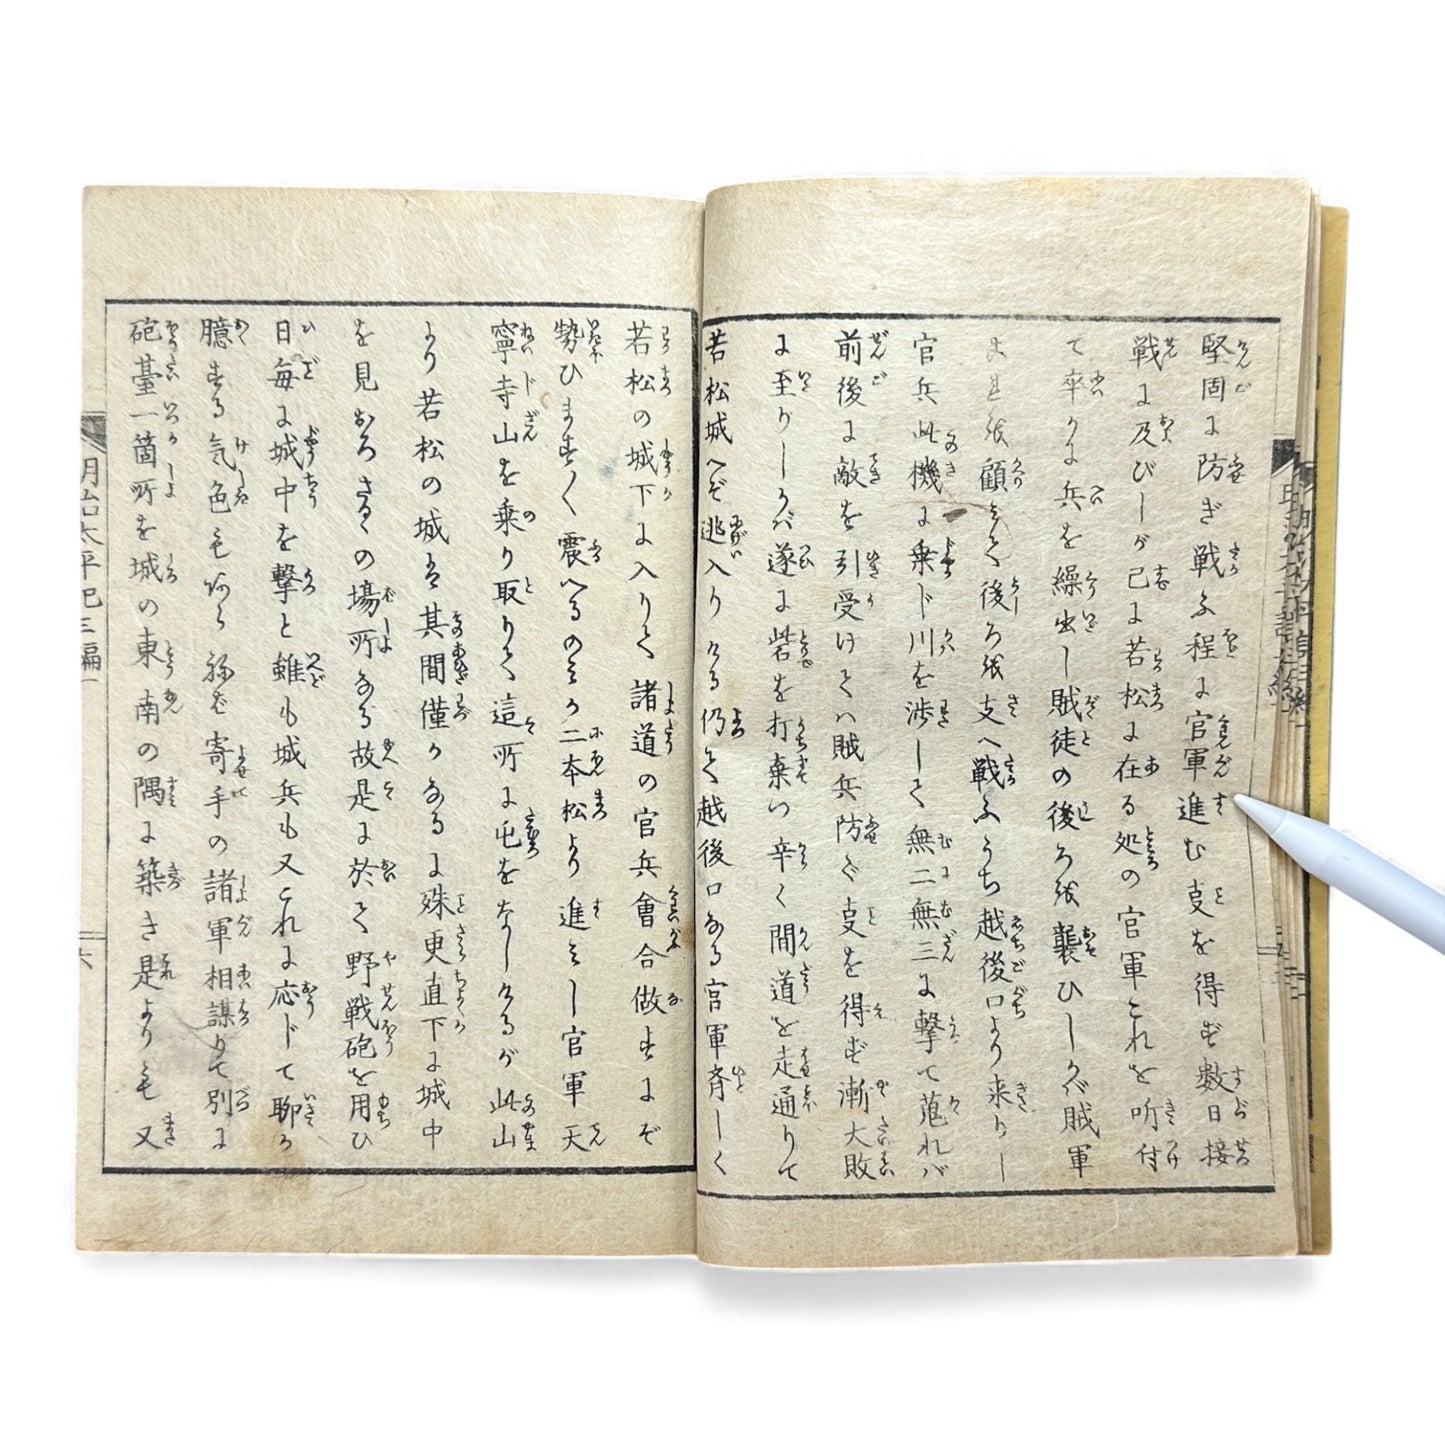 堅固に防ぎ戦ふ程に官軍進む支を得ず数日接
戦に及びしが已に若松に在る処の官軍これを听付
て卒かに兵を繰出し賊徒の後ろを襲ひしかば賊軍
これを顧みて後ろを支へ戦ふうち越後口より来りし
官兵此機に乗じ川を渉して無二無三に撃て蒐れば
前後に敵を引受けては賊兵防ぐ支を得ず漸大敗
に至りしかば遂に砦を打棄つ辛く間道を走通りて
若松城へぞ逃入りける仍て越後口なる官軍斉しく
若松の城下に入りて諸道の官兵會合做すにぞ
勢ひますます震へるのみか二本松より進みし官軍天
寧寺山を乗り取りて這所に屯をなしけるが此山
より若松の城は其間僅かなるに殊更直下に城中
を見おろさるゝの場所なる故是に於て野戦砲を用ひ
日毎に城中を撃と雖も城兵も又これに応じて聊か
臆する気色もあらねば寄手の諸軍相謀りて別に
砲䑓一箇所を城の東南の隅に築き是よりも又
明治太平記三編一
六